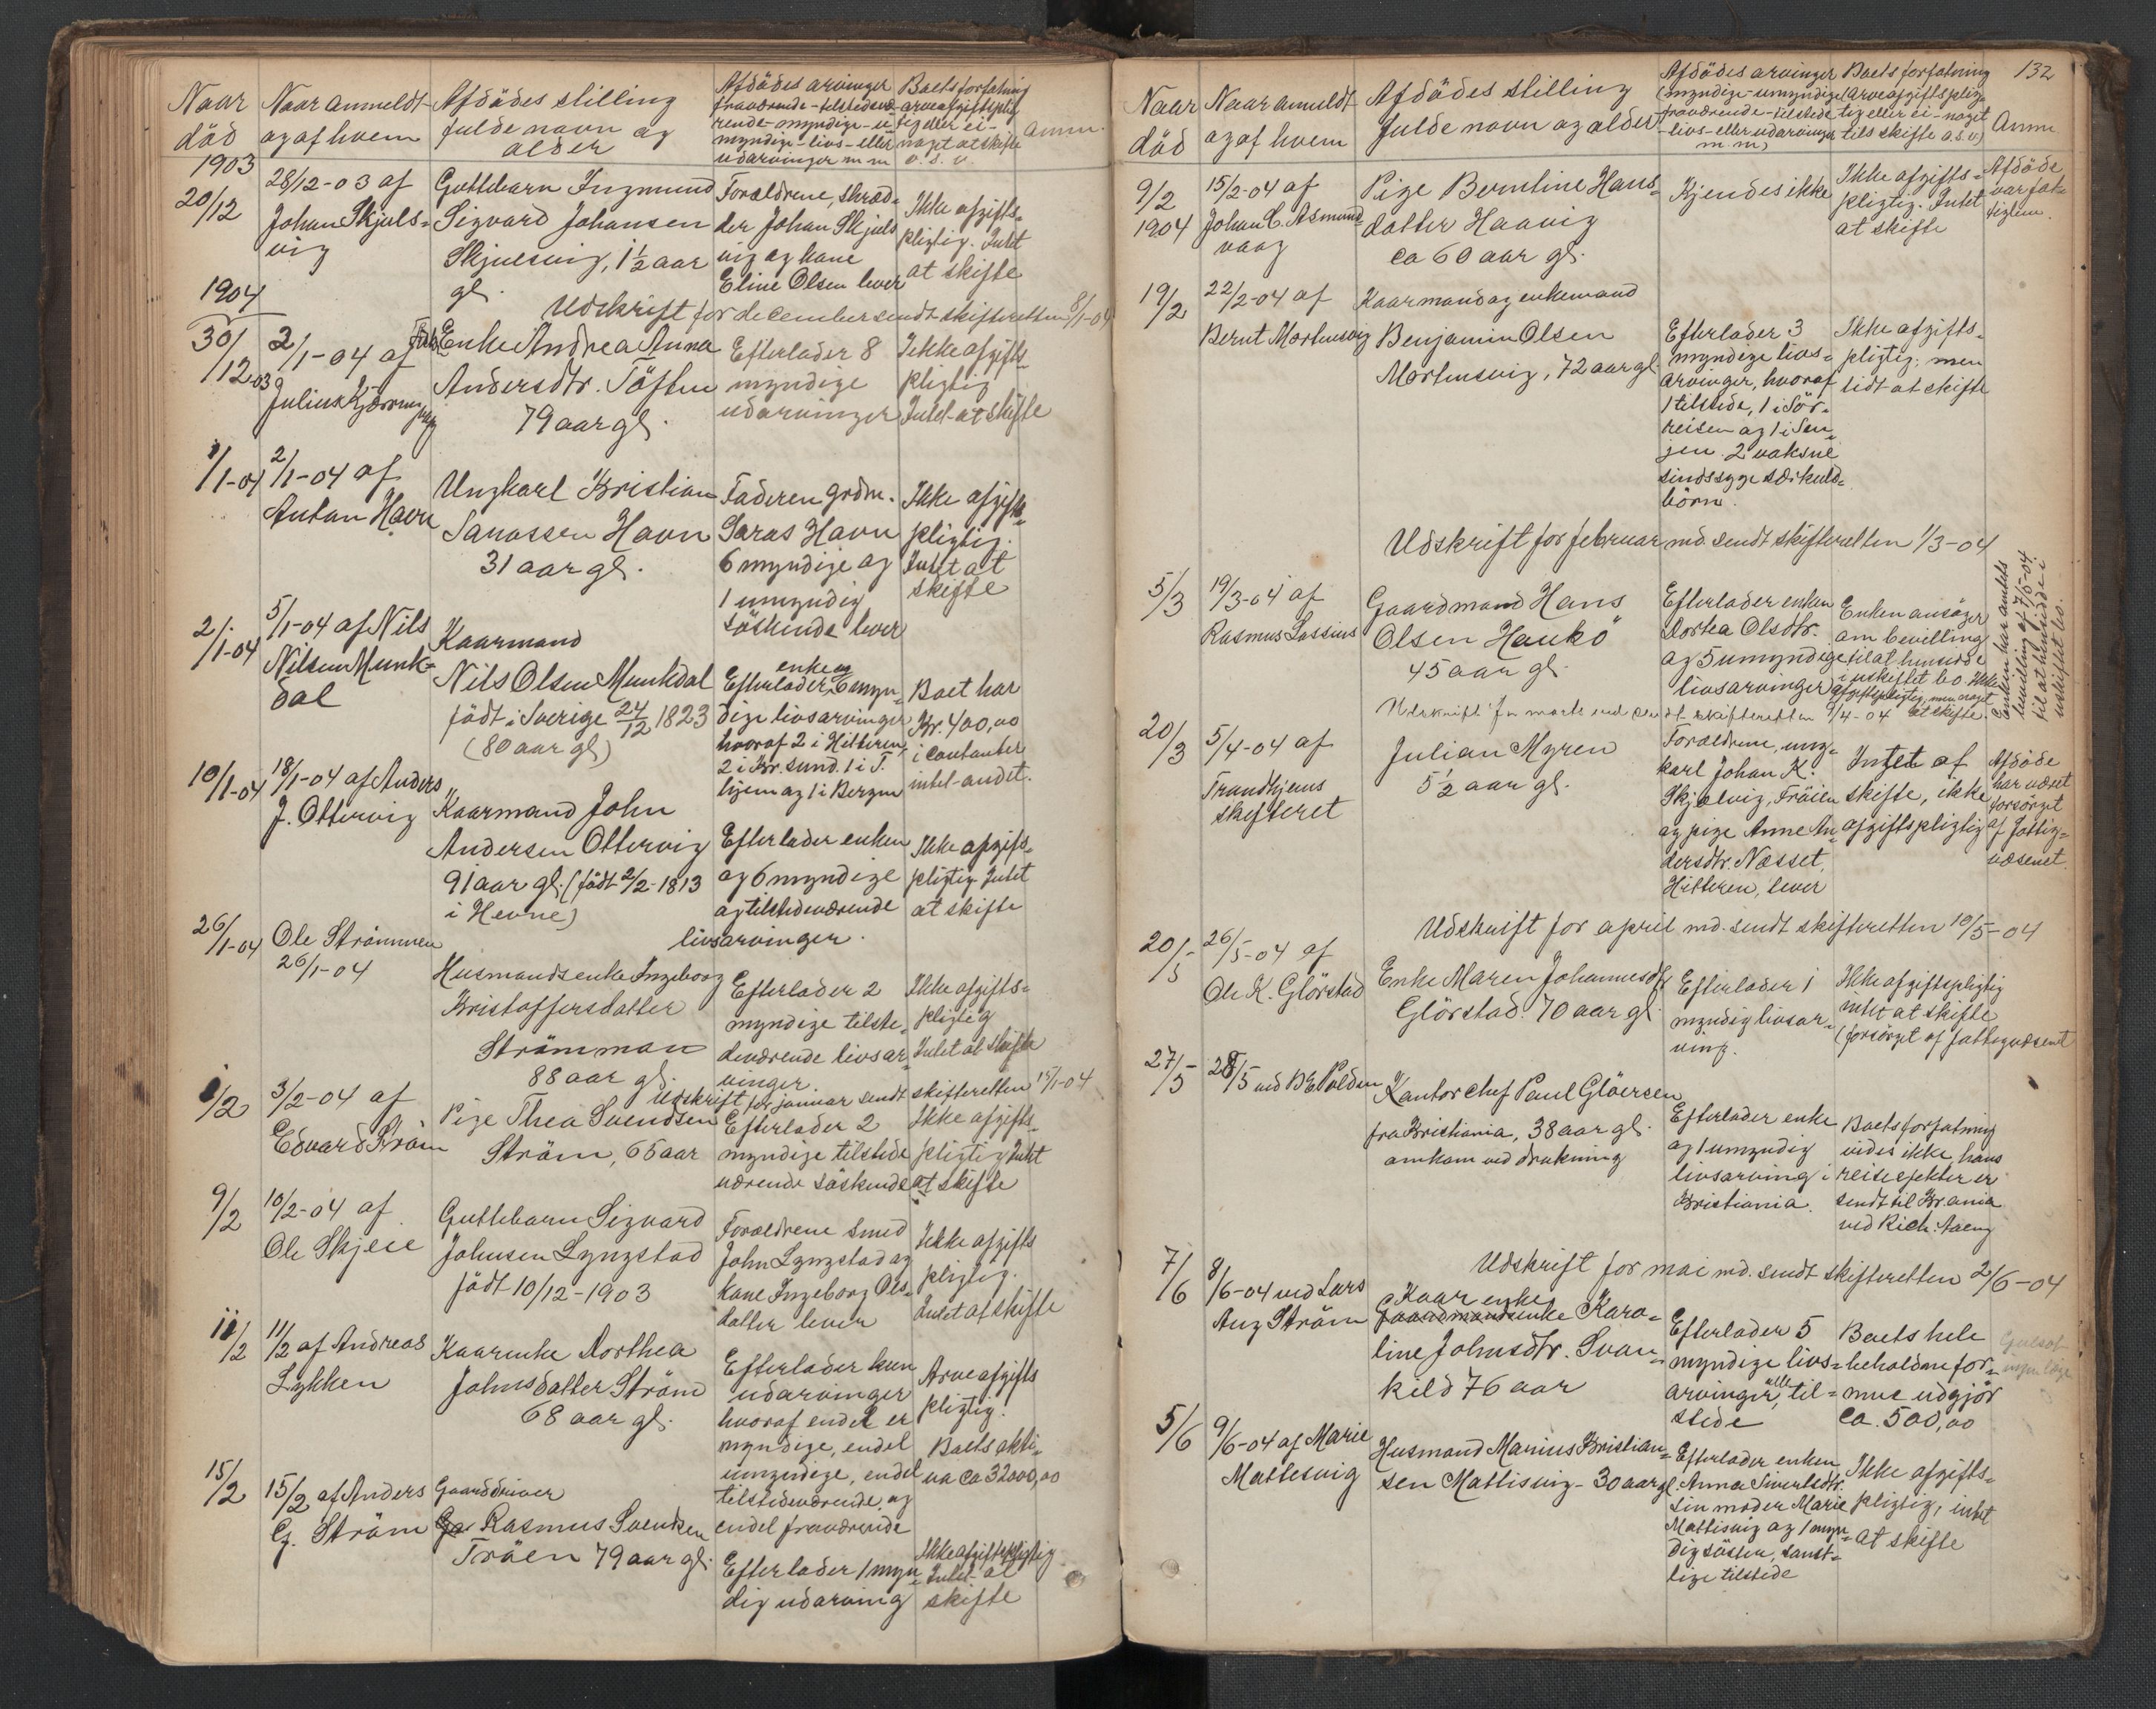 Naar
död
Naar anmeldt
og af hvem
Afdödes stilling
fulde navn og
alder
Afdödes arvinger
fraværende - tilstedevæ-
rende - myndige - u-
myndige - livs - eller
udarvinger m m
Boets forfatning
arveafgiftsplig
tig eller ei -
noget at skifte
o. s. v.
Anm.
1903
20/12
28/12-03 af
Johan Skjuls-
vig
Guttebarn Ingmund
Sigvard Johansen
Skjulsvig, 1½ aar
gl.
Forældrene, skræd-
der Johan Skjuls
vig og kone
Eline Olsen lever
Ikke afgifts-
pligtig. Intet
at skifte
Udskrift for december sendt skifteretten 8/1-04
1904
30/12-03
2/1-04 af
Julius Kjørren
Enke Andrea Anna
Andersdtr. Töften
79 aar gl.
Efterlader 8
myndige
udarvinger
Ikke afgifts-
pligtig
Intet at skifte
1/1-04
2/1-04 af
Anton Havn
Ungkarl Kristian
Sarassen Havn
31 aar gl.
Faderen grdm.
Saras Havn
6 myndige og
1 umyndig
söskende lever
Ikke afgifts-
pligtig.
Intet at
skifte
2/1-04
5/1-04 af Nils
Nilsen Munk-
dal
Kaarmand
Nils Olsen Munkdal
födt i Sverige 24/12 1823
(80 aar gl)
enke og
Efterlader 6 myn-
dige livsarvinger
hvoraf 2 i Hitteren,
2 i Kr.sund. 1 i T.
hjem og 1 i Bergen
Boet har
Kr. 400,00
i contanter
intet andet.
10/1-04
18/1-04 af Anders
J. Ottervig
Kaarmand John
Andersen Ottervig
91 aar gl. (födt 2/2-1813
i Hevne)
Efterlader enken
og 6 myndige
og tilstedeværende
livsarvinger.
Ikke afgifts-
pligtig Intet
at skifte
26/1-04
Ole Strömmen
26/1-04
Husmandsenke Ingeborg
Kristoffersdatter
Strömman
88 aar gl.
Efterlader 2
myndige tilste-
deværende livsar-
vinger.
Ikke afgifts-
pligtig
Intet at skifte
Udskrift for januar sendt skifteretten 15/1-04
1/2
3/2-04 af
Edvard Ström
Pige Thea Svendsen
Ström, 65 aar
Efterlader 2
myndige tilstede
værende söskende
Ikke afgifts-
pligtig Intet
at skifte
9/2
10/2-04 af
Ole Skjece
Guttebarn Sigvard
Johnsen Lyngstad
födt 10/12-1903
Forældrene Smed
John Lyngstad og
kone Ingeborg Ols-
datter lever
Ikke afgifts
pligtig.
Intet at skifte
11/2
11/2 af Andreas
Lykken
Kaarenke Dorthea
Johnsdatter Ström
68 aar gl.
Efterlader kun
udarvinger
hvoraf endel er
myndige, endel
umyndige, endel
tilstedeværende og
endel fraværende
Arveafgifts
pligtig.
Boets akti-
va ca 32000,00
15/2
15/2 af Anders
G. Ström
Gaarddriver
Rasmus Svendsen
Tröen 79 aar gl.
Efterlader 1 myn-
dig udarving
Ikke afgiftspligtig
Intet at
skifte
132
Naar
död
Naar anmeldt
og af hvem
Afdödes stilling
fulde navn og alder
Afdödes arvinger
(myndige - umyndige
fraværende - tilstede
- livs - eller udarvinger
m. m.)
Boets forfatning
(arveafgiftsplig-
tig eller ei - noget
til skifte o.s.v)
Anm
9/2
1904
15/2-04 af
Johan C. Asmund-
vaag
Pige Berntine Hans-
datter Haavig
ca 60 aar gl.
Kjendes ikke
Ikke afgifts-
pligtig. Intet
at skifte
Afdöde
var fat-
tiglem.
19/2
22/2-04 af
Bernt Mortensvig
Kaarmand og enkemand
Benjamin Olsen
Mortensvig, 72 aar gl.
Efterlader 3
myndige livs-
arvinger, hvoraf
1 tilstede, 1 i Sör-
reisen og 1 i Sen-
jen. 2 voksne
sindssyge særkuld-
börn.
Ikke afgifts-
pligtig; men
lidt at skifte
Udskrift for februar md. sendt skifteretten 1/3-04
5/3
19/3-04 af
Rasmus Lossius
Gaardmand Hans
Olsen Haukö
45 aar gl.
Efterlader enken
Dortea Olsdtr.
og 5 umyndige
livsarvinger
Enken ansöger
om bevilling
til at hensidde
i uskiftet bo. Ikke
afgiftspligtig, men noget
at skifte.
Enken har erholdt
bevilling af 7/5-04
til at hensidde i
uskiftet bo.
Udskrift for marts md sendt skifteretten 9/4-04
20/3
5/4-04 af
Trondhjems
skifteret
Julian Myren
5½ aar gl.
Forældrene, ung-
karl Johan K.
Skjelvig, Fröien
og pige Anne An-
dersdtr. Næsset,
Hitteren, lever
Intet af
skifte, ikke
afgiftspligtig
Afdöde
har været
forsörget
af fattig-
væsenet.
Udskrift for april md. sendt skifteretten 10/5-04
20/5
26/5-04 af
Ole K. Glörstad
Enke Maren Johannesdtr
Glörstad. 70 aar gl
Efterlader 1
myndig livsar-
ving.
Ikke afgiftspligtig
intet at skifte
(forsörget af fattigvæsenet
27/5
28/5 ved B E Polden
Kontorchef Paul Glöersen
fra Kristiania, 38 aar gl.
omkom ved drukning
Efterlader enke
og 1 umyndig
livsarving i
Kristiania.
Boets forfatning
vides ikke, hans
reiseefekter er
sendt til Kr.ania
ved Rich: Aaeng
Udskrift for mai md. sendt skifteretten 2/6-04
7/6
8/6-04 ved Lars
Aug Ström
Kaarenke
Gaardmandsenke Karo-
line Johnsdtr. Svan-
kild 76 aar
Efterlader 5
myndige livs-
arvinger, alle til-
stede
Boets hele
beholdne for-
mue udgjör
Ca. 500,00
5/6
9/6-04 af Marie
Mattesvig
Husmand Marius Kristian-
sen Mattisvig - 30 aar gl.
Efterlader enken
Anna Sivertsdtr.
sin moder Marie
Mattisvig og 1 myn-
dig söster, samt-
lige tilstede
Ikke afgifts-
pligtig, intet
at skifte